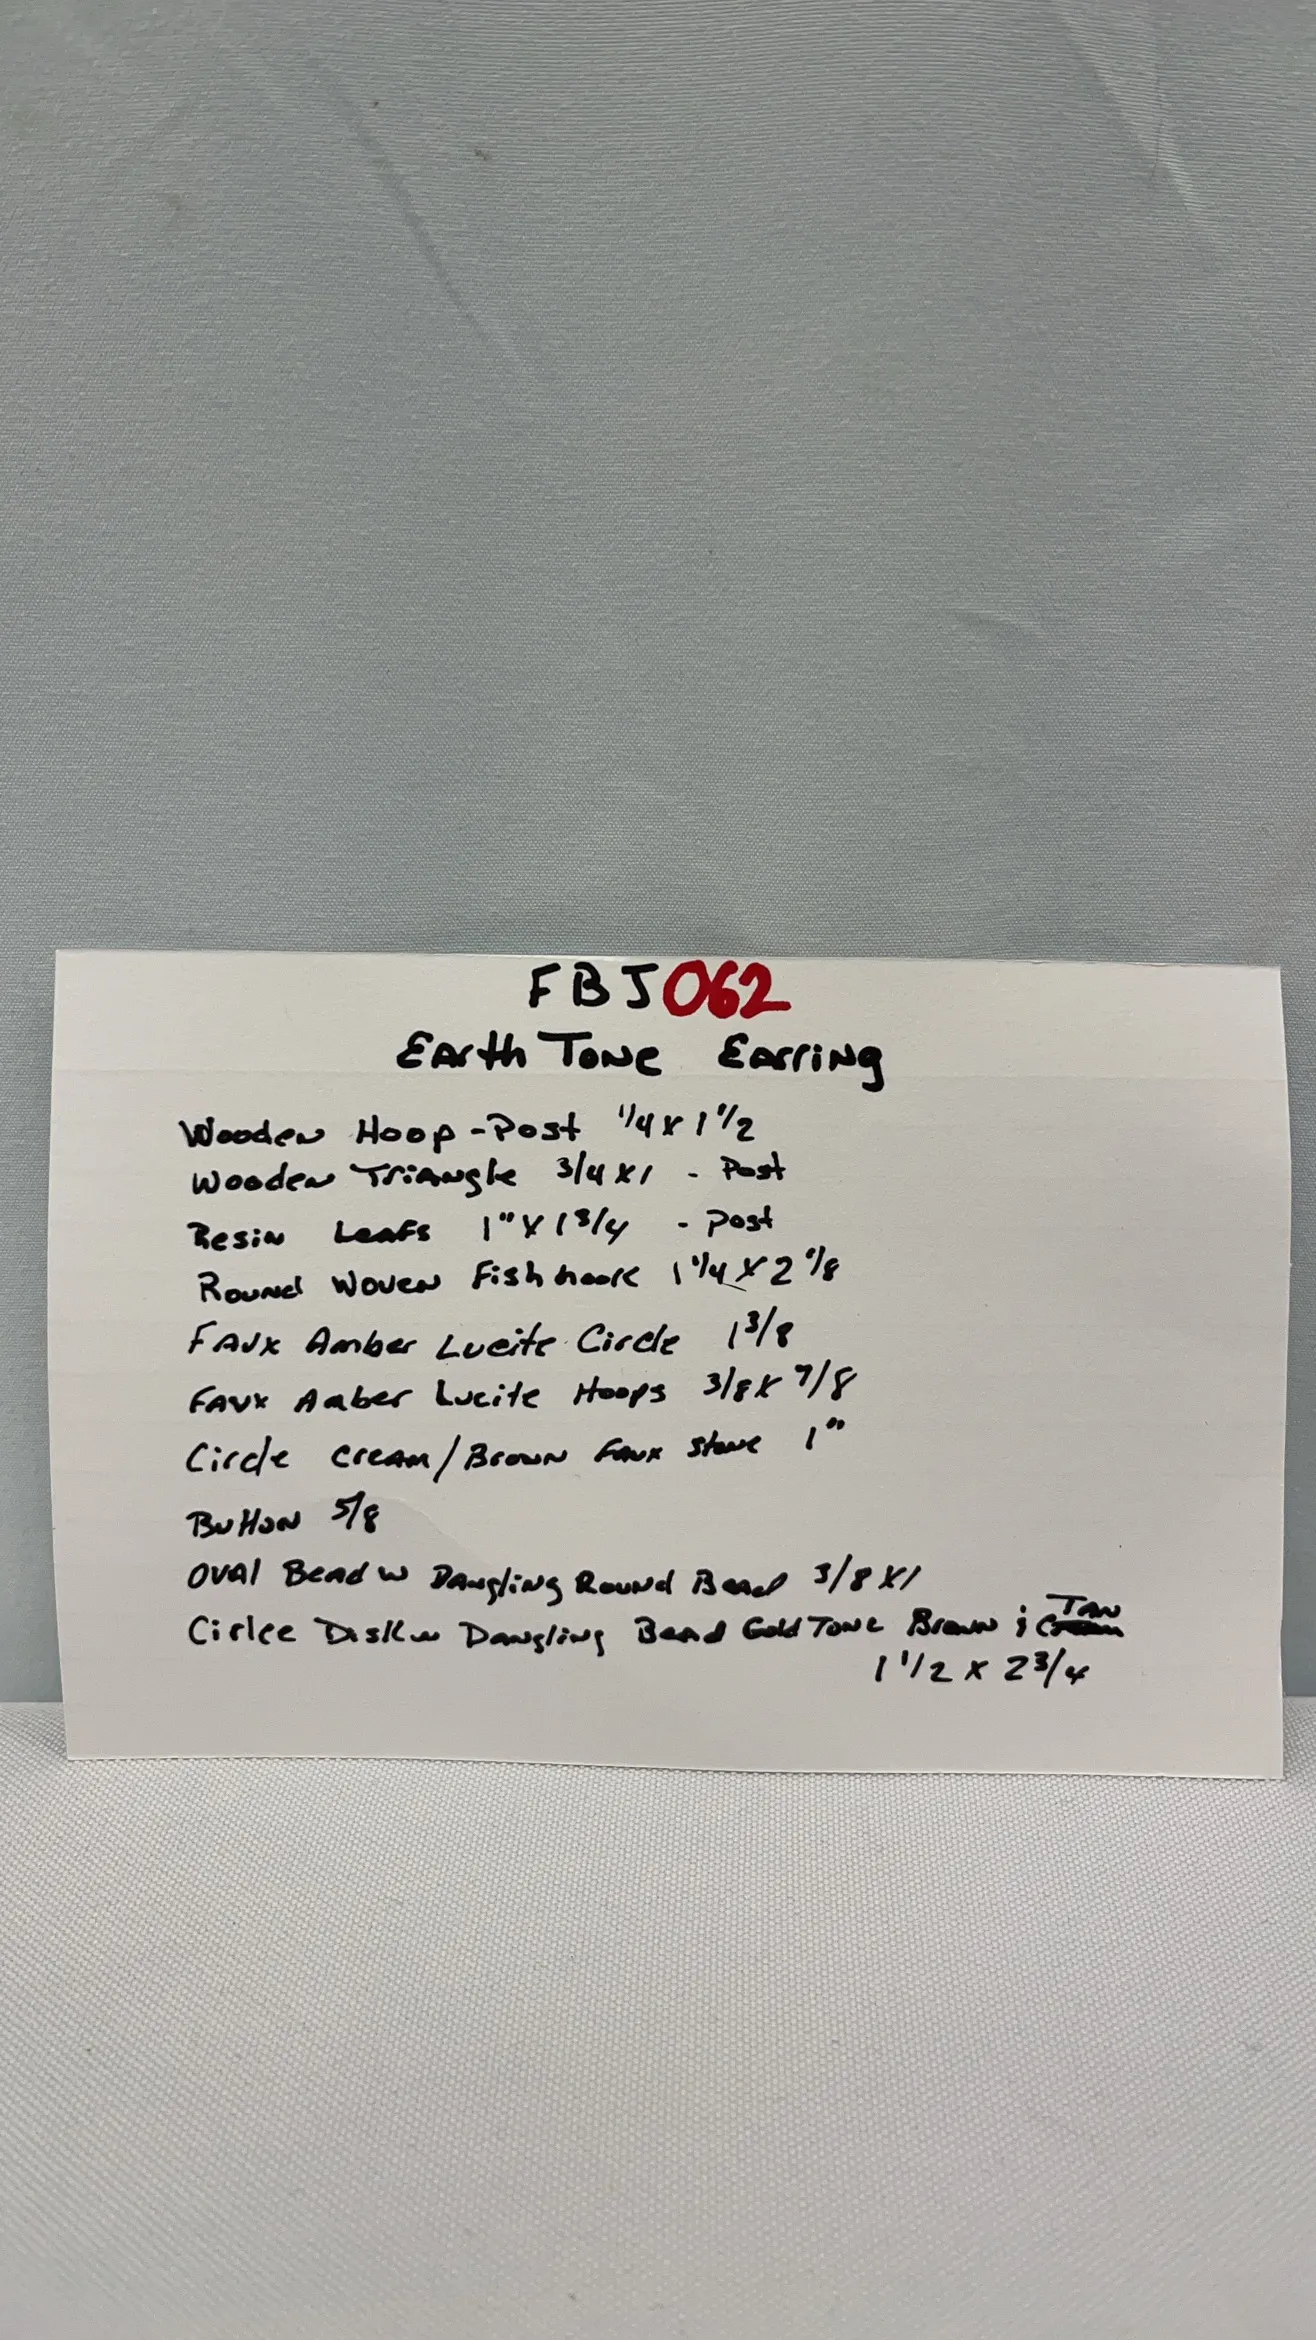 FBJ062
Earth Tone Earring
Wooden Hoop-Post 1/4 x 1 1/2
Wooden Triangle 3/4 x 1 - Post
Resin Leafs 1" x 1 3/4 - Post
Round Woven Fishhook 1 1/4 x 2 1/8
Faux Amber Lucite Circle 1 3/8
Faux Amber Lucite Hoops 3/8 x 7/8
Circle Cream/Brown Faux Stone 1"
Button 5/8
Oval Bead w Dangling Round Bead 3/8 x 1
Cirlce Disk w Dangling Bead Gold Tone Brown ; Tan
1 1/2 x 2 3/4